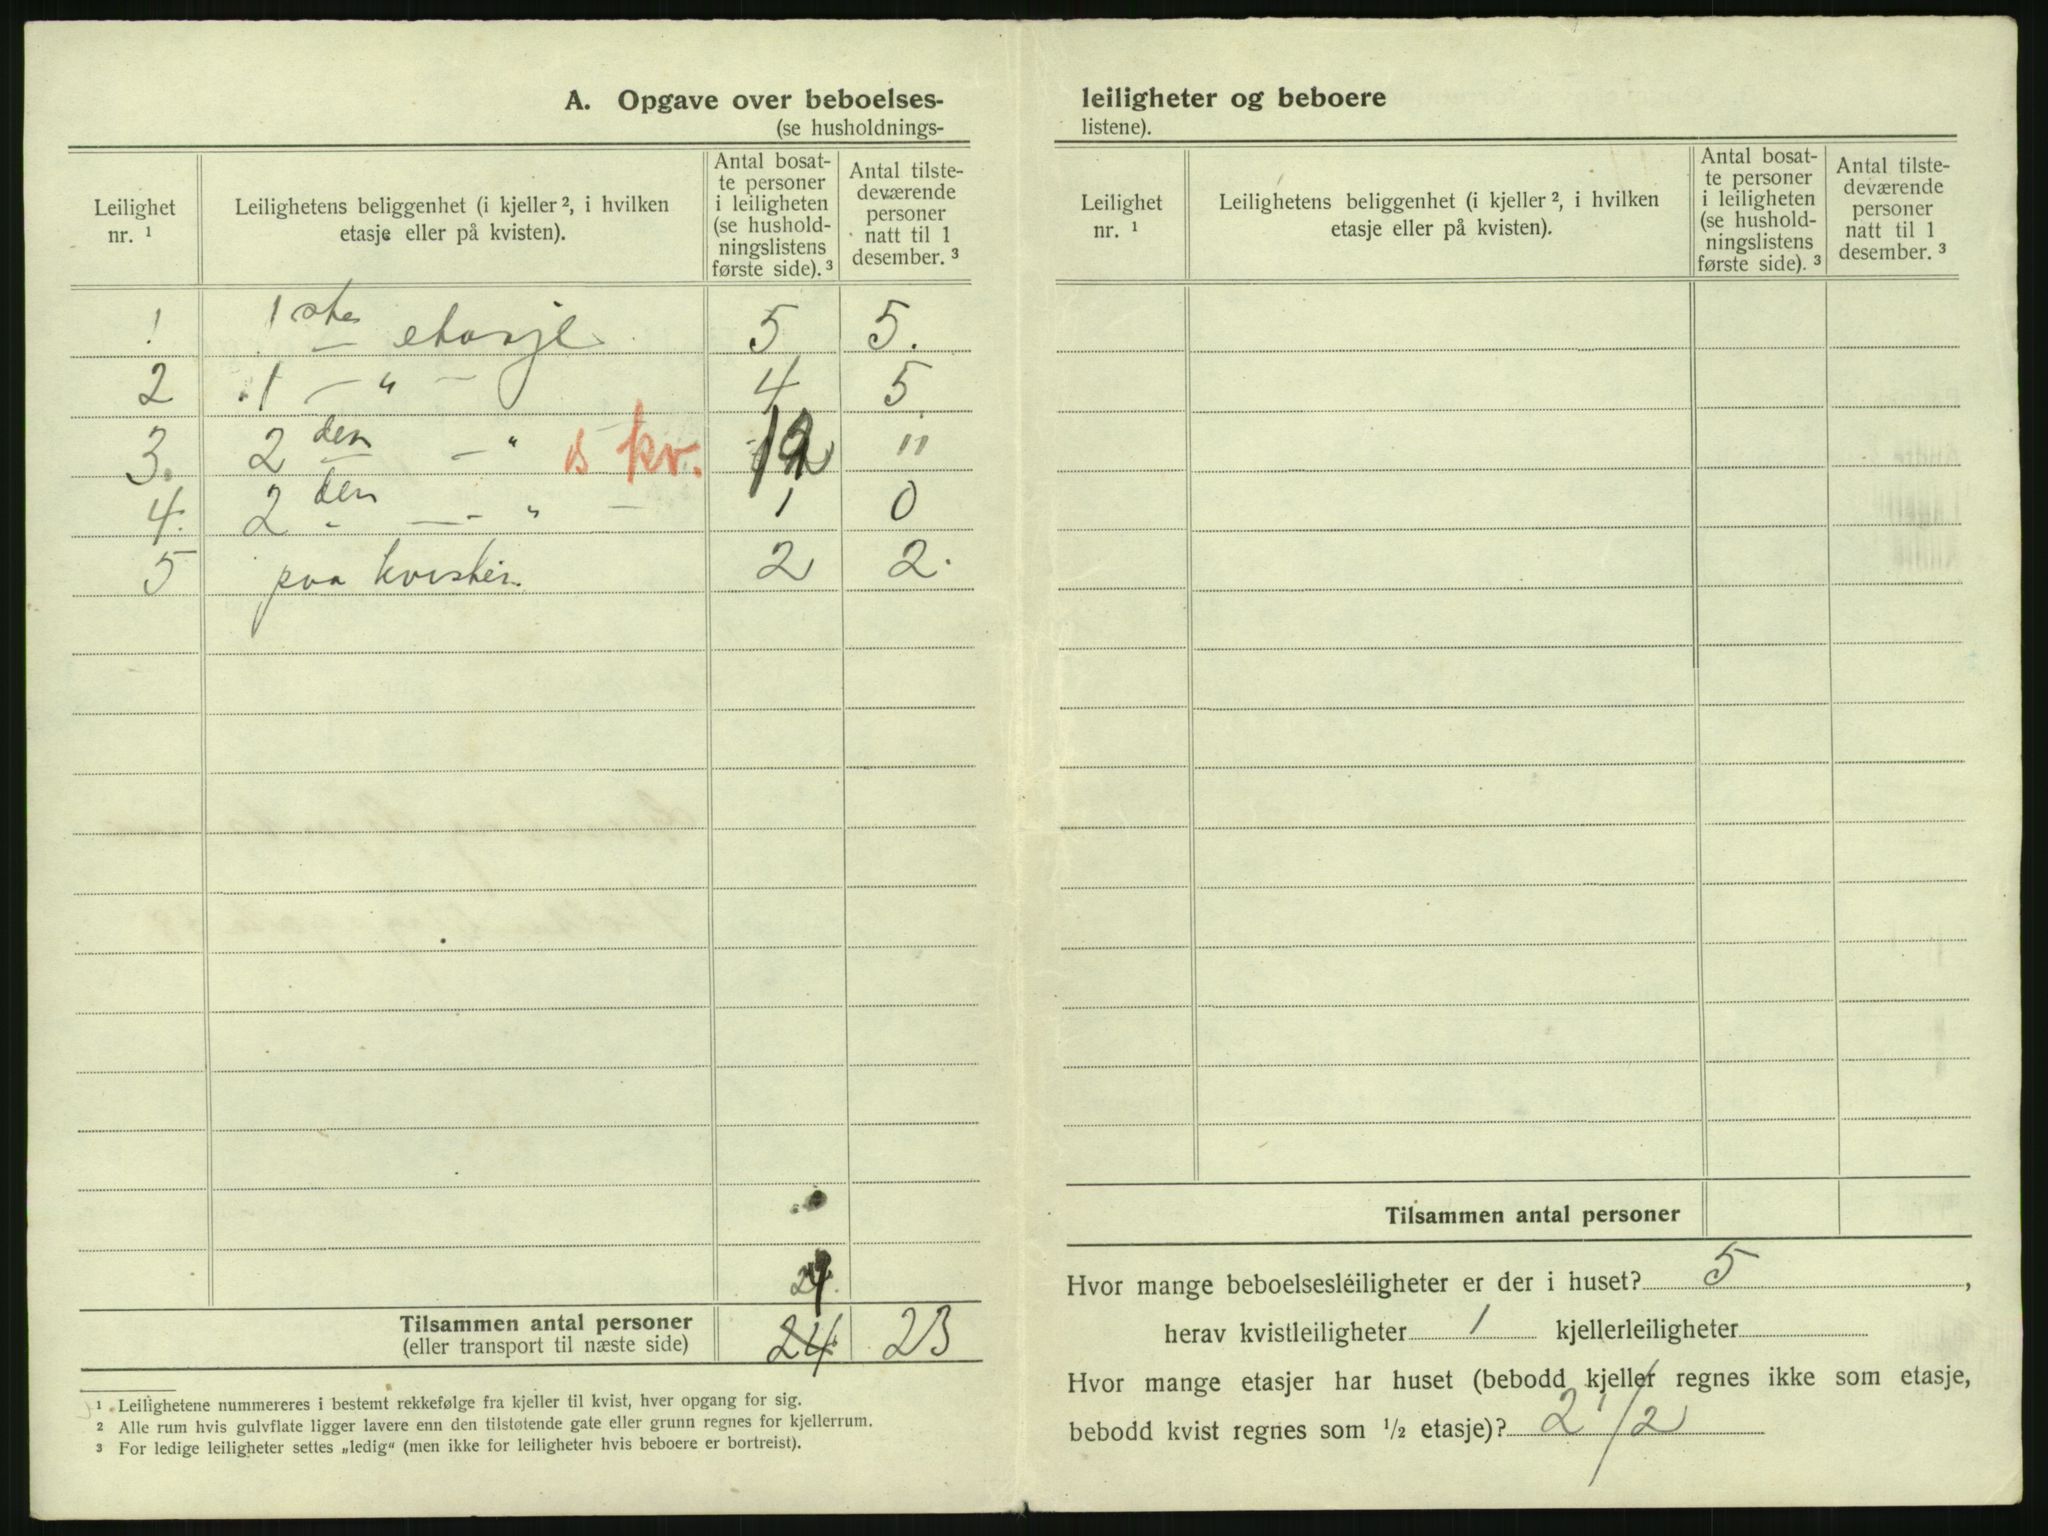 A. Opgave over beboelses-
(se husholdnings-
Leilighet nr. ¹
Leilighetens beliggenhet (i kjeller ², i hvilken etasje eller på kvisten).
Antal bosat-
te personer
i leiligheten
(se hushold-
ningslistens
første side). ³
Antal tilste-
deværende
personer
natt til 1
desember. ³
1 1ste etasje 5 5.
2 1 — " — 4 5.
3. 2 den — " & kv. 12 11
4. 2 den — " — 1 0
5 paa kvisten. 2 2.
24.
Tilsammen antal personer 24 23
(eller transport til næste side)
¹ Leilighetene nummereres i bestemt rekkefølge fra kjeller til kvist, hver opgang for sig.
² Alle rum hvis gulvflate ligger lavere enn den tilstøtende gate eller grunn regnes for kjellerrum.
³ For ledige leiligheter settes „ledig“ (men ikke for leiligheter hvis beboere er bortreist).
leiligheter og beboere
listene).
Leilighet nr. ¹
Leilighetens beliggenhet (i kjeller ², i hvilken etasje eller på kvisten).
Antal bosat-
te personer
i leiligheten
(se hushold-
ningslistens
første side). ³
Antal tilste-
deværende
personer
natt til 1
desember. ³
Tilsammen antal personer
Hvor mange beboelsesleiligheter er der i huset? 5,
herav kvistleiligheter 1 kjellerleiligheter
Hvor mange etasjer har huset (bebodd kjeller regnes ikke som etasje,
bebodd kvist regnes som ½ etasje)? 2 1/2